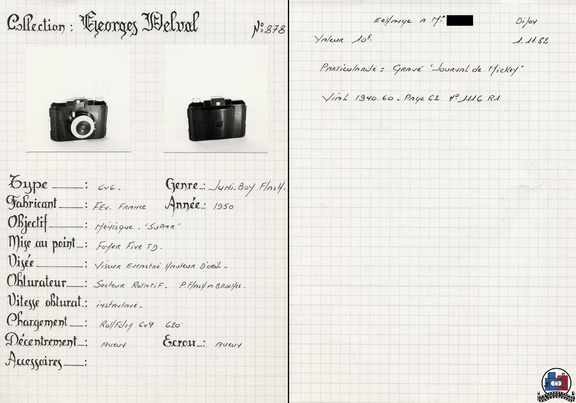 Collection : Georges Delval N°: 878
Type : 6x6. Genre : Juni. Boy Flash.
Fabricant : Fex. France Année : 1950
Objectif : Ménisque. "Supar"
Mise au point : Foyer Fixe TD.
Visée : Viseur Hauteur D'oeil -
Obturateur : Secteur Rotatif. P. Flash
Vitesse obturat. : instantané -
Chargement : Roll Film 6x9 620
Décentrement : Aucun Ecrou : Aucun
Accessoires :
Echange a Mr Dijon
Valeur 10f. 1.11.82
Particularité : Gravé "Journal de Mickey"
Vial 1940.60. Page 62 N° 1116 R1